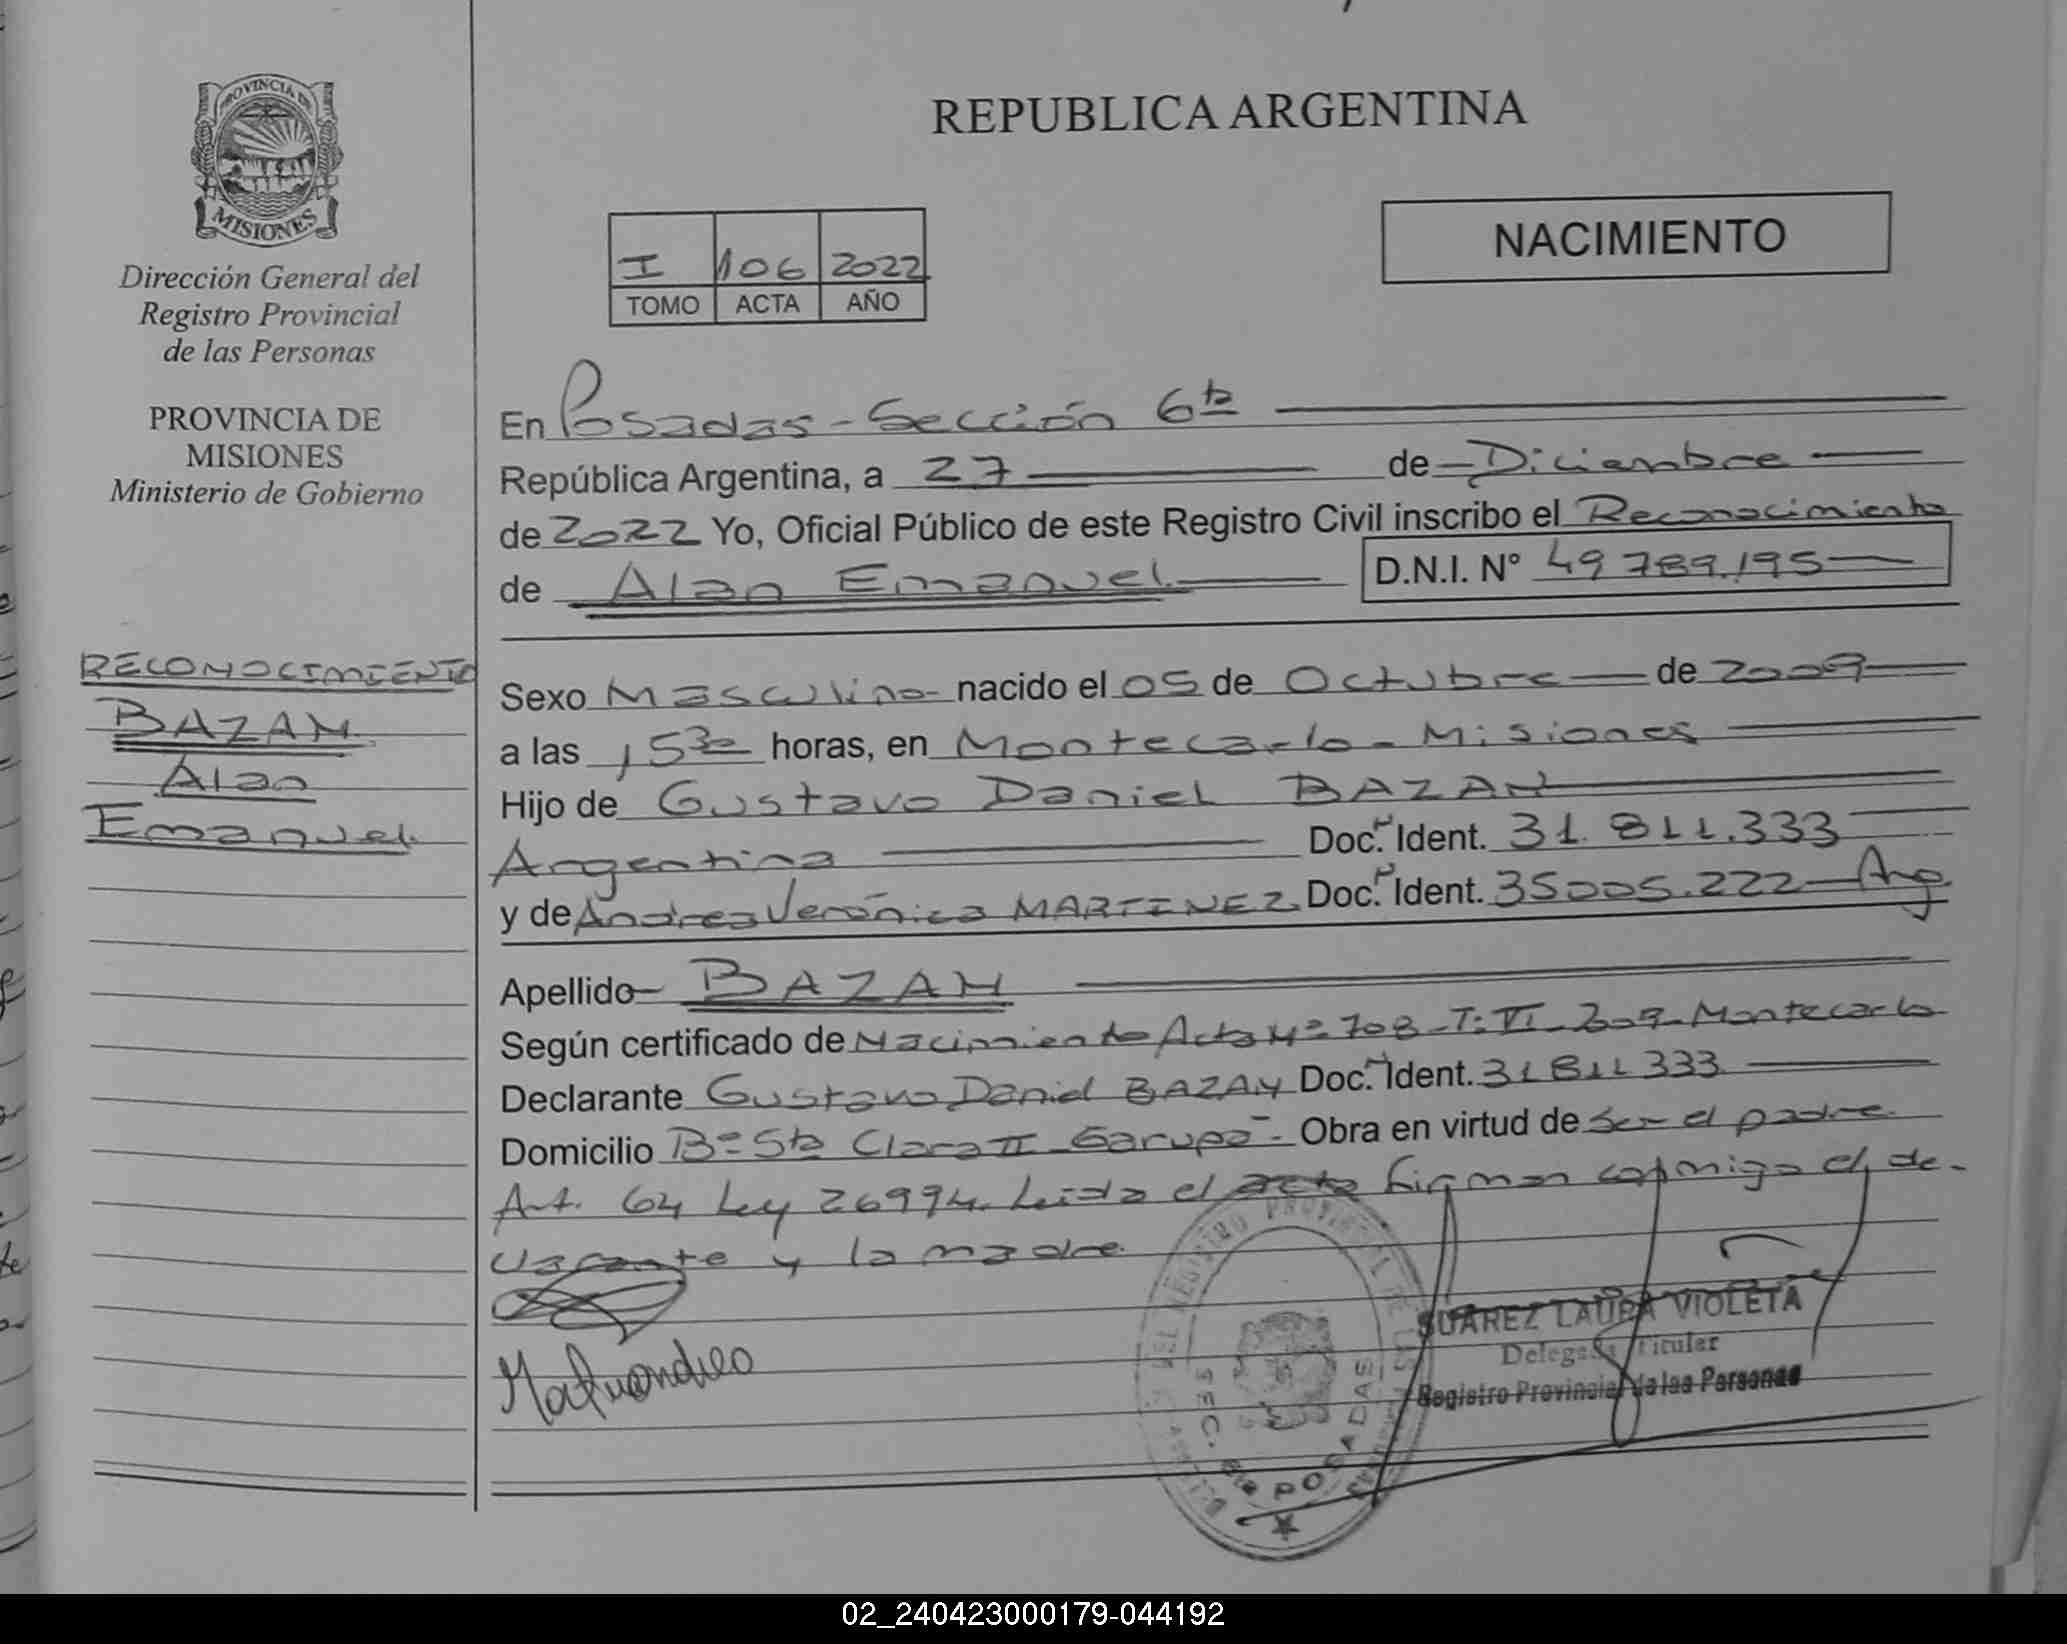 PROVINCIA DE
MISIONES
Dirección General del
Registro Provincial
de las Personas
PROVINCIA DE
MISIONES
Ministerio de Gobierno
RECONOCIMIENTO
BAZAN
Alan
Emanuel
REPUBLICA ARGENTINA
NACIMIENTO
I 106 2022
TOMO ACTA AÑO
En Posadas - Sección 6ta
República Argentina, a 27 de Diciembre
de 2022 Yo, Oficial Público de este Registro Civil inscribo el Reconocimiento
de Alan Emanuel D.N.I. N° 49 789.195
Sexo Masculino nacido el 05 de Octubre de 2009
a las 15 30 horas, en Montecarlo - Misiones
Hijo de Gustavo Daniel BAZAN
Argentina Doc. Ident. 31.811.333
y de Andrea Verónica MARTINEZ Doc. Ident. 35005.222 Arg.
Apellido BAZAN
Según certificado de Nacimiento Acta Nº 708 - T: VI - 2009 - Montecarlo
Declarante Gustavo Daniel BAZAN Doc. Ident. 31 811 333
Domicilio Bº Sta Clara II - Garupá - Obra en virtud de ser el padre
Art. 64 Ley 26994. Leída el acta firman conmigo el de-
clarante y la madre.
SUAREZ LAURA VIOLETA
Delegada Titular
Registro Provincial de las Personas
SEC. 6ta POSADAS
02_240423000179-044192